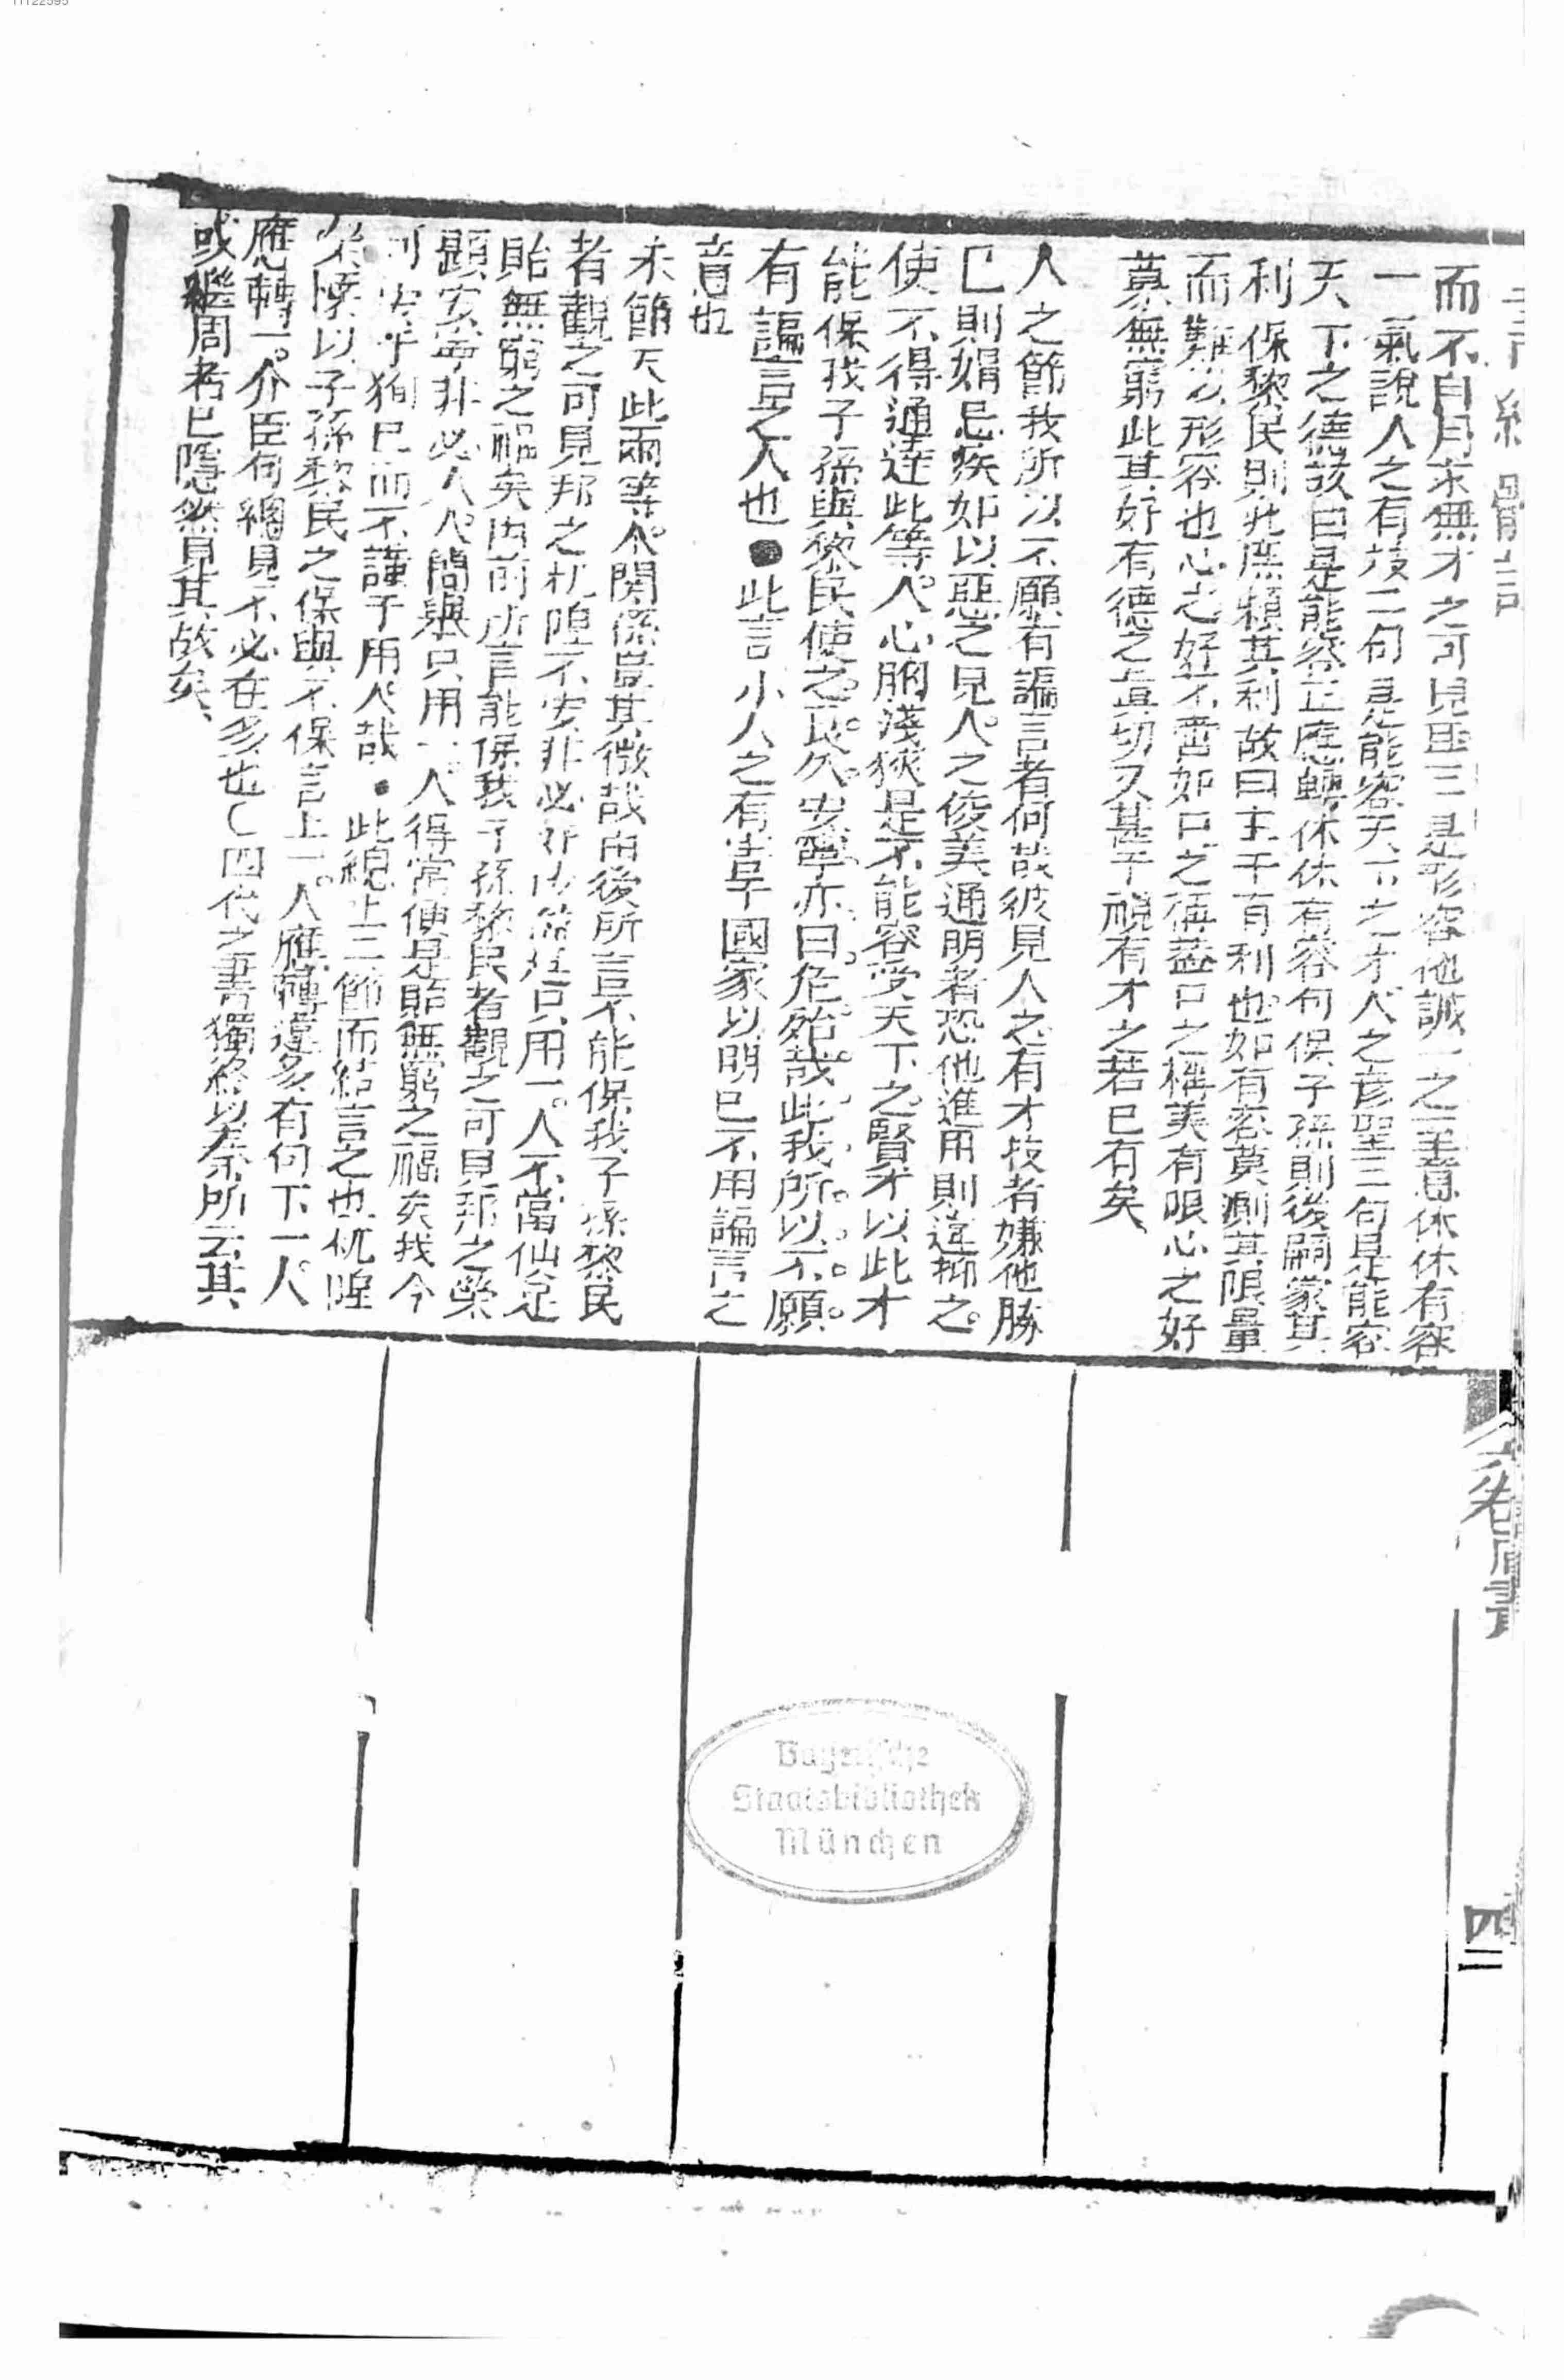 11122595
書經體註
而不自用求無才之可見耳三是形容他誠一之至意休休有容
一氣說人之有技二句是能容天下之才人之彥聖三句是能容
天下之德故曰是能容正應轉休休有容句保子孫則後嗣蒙其
利保黎民則兆庶賴其利故曰主于有利也如有容莫測其限量
而難以形容也心之好不啻如口之稱蓋口之稱美有限心之好
慕無窮此其好有德之真切又甚于視有才之若已有矣
人之節我所以不願有諞言者何哉彼見人之有才技者嫌他勝
已則娟忌疾如以惡之見人之俊美通明者恐他進用則違抑之
使不得通達此等人心胸淺狹是不能容受天下之賢才以此才
能保我子孫與黎民使之長久安寧亦曰危殆哉此我所以不願
有諞言之人也●此言小人之有害于國家以明已不用諞言之
意也
末節夫此兩等人關係豈其微哉由後所言不能保我子孫黎民
者觀之可見邦之杌隉不安非必 只用一人不當仙足
貽無窮之禍矣由前所言能保我子孫黎民者觀之可見邦之榮
顯安寧非必人人問舉只用一人得當便是貽無窮之福矣我今
可 乎狥已而不謹于用人哉●此總上三節而結言之也杌隉
榮懷以子孫黎民之保與不保言上一人應轉違多有句下一人
應轉一介臣句總見不必在多也 四代之書獨終以秦所云其
或繼周者已隱然見其故矣
卷 周書
四二
Bayerische
Staatsbibliothek
München